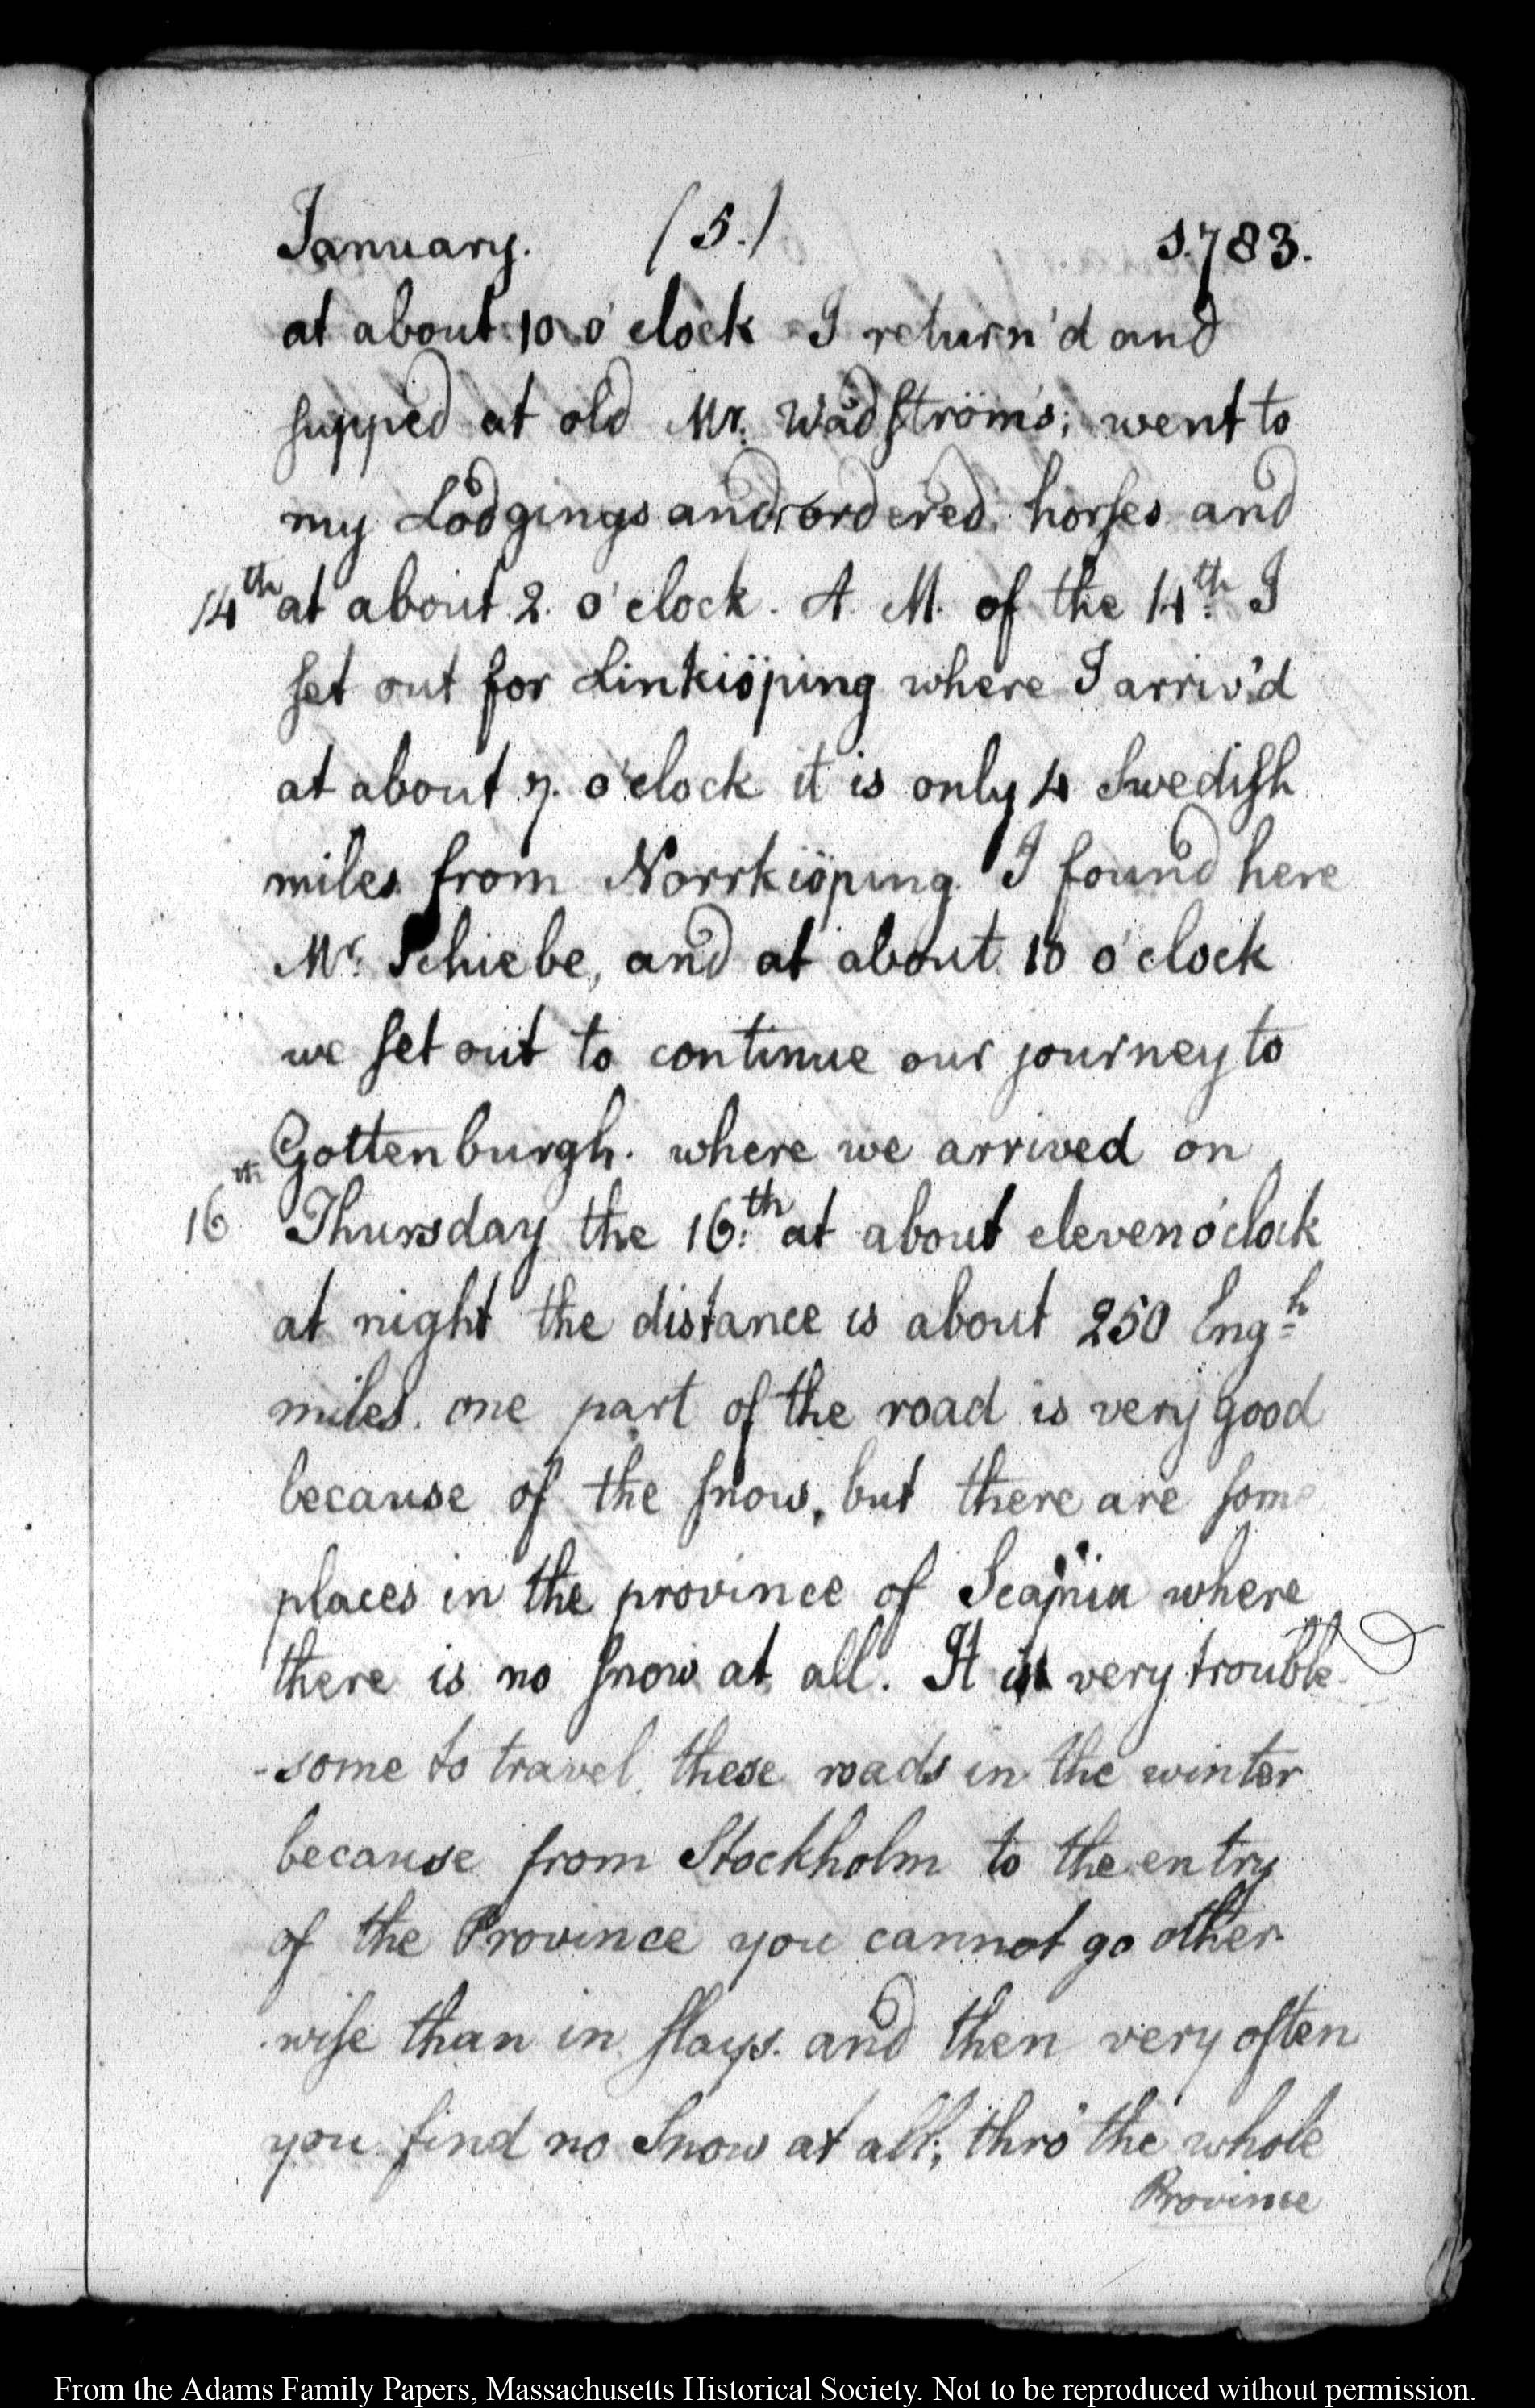 January. (5.) 1783.
at about 10 o'clock I return'd and
supped at old Mr. Wådströms; went to
my Lodgings and ordered horses and
14th at about 2. o'clock. A. M. of the 14th. I
set out for Linkiöping where I arriv'd
at about 7. o'clock it is only 4 Swedish
miles from Norrkiöping. I found here
Mr. Schiebe, and at about 10 o'clock
we set out to continue our journey to
Gottenburgh. where we arrived on
16th Thursday the 16th. at about eleven o'clock
at night the distance is about 250 Engh
miles. one part of the road is very good
because of the snow, but there are some
places in the province of Scania where
there is no snow at all. It is very trouble-
-some to travel these roads in the winter
because from Stockholm to the entry
of the Province you cannot go other-
wise than in slays. and then very often
you find no Snow at all; thro' the whole
Province
From the Adams Family Papers, Massachusetts Historical Society. Not to be reproduced without permission.